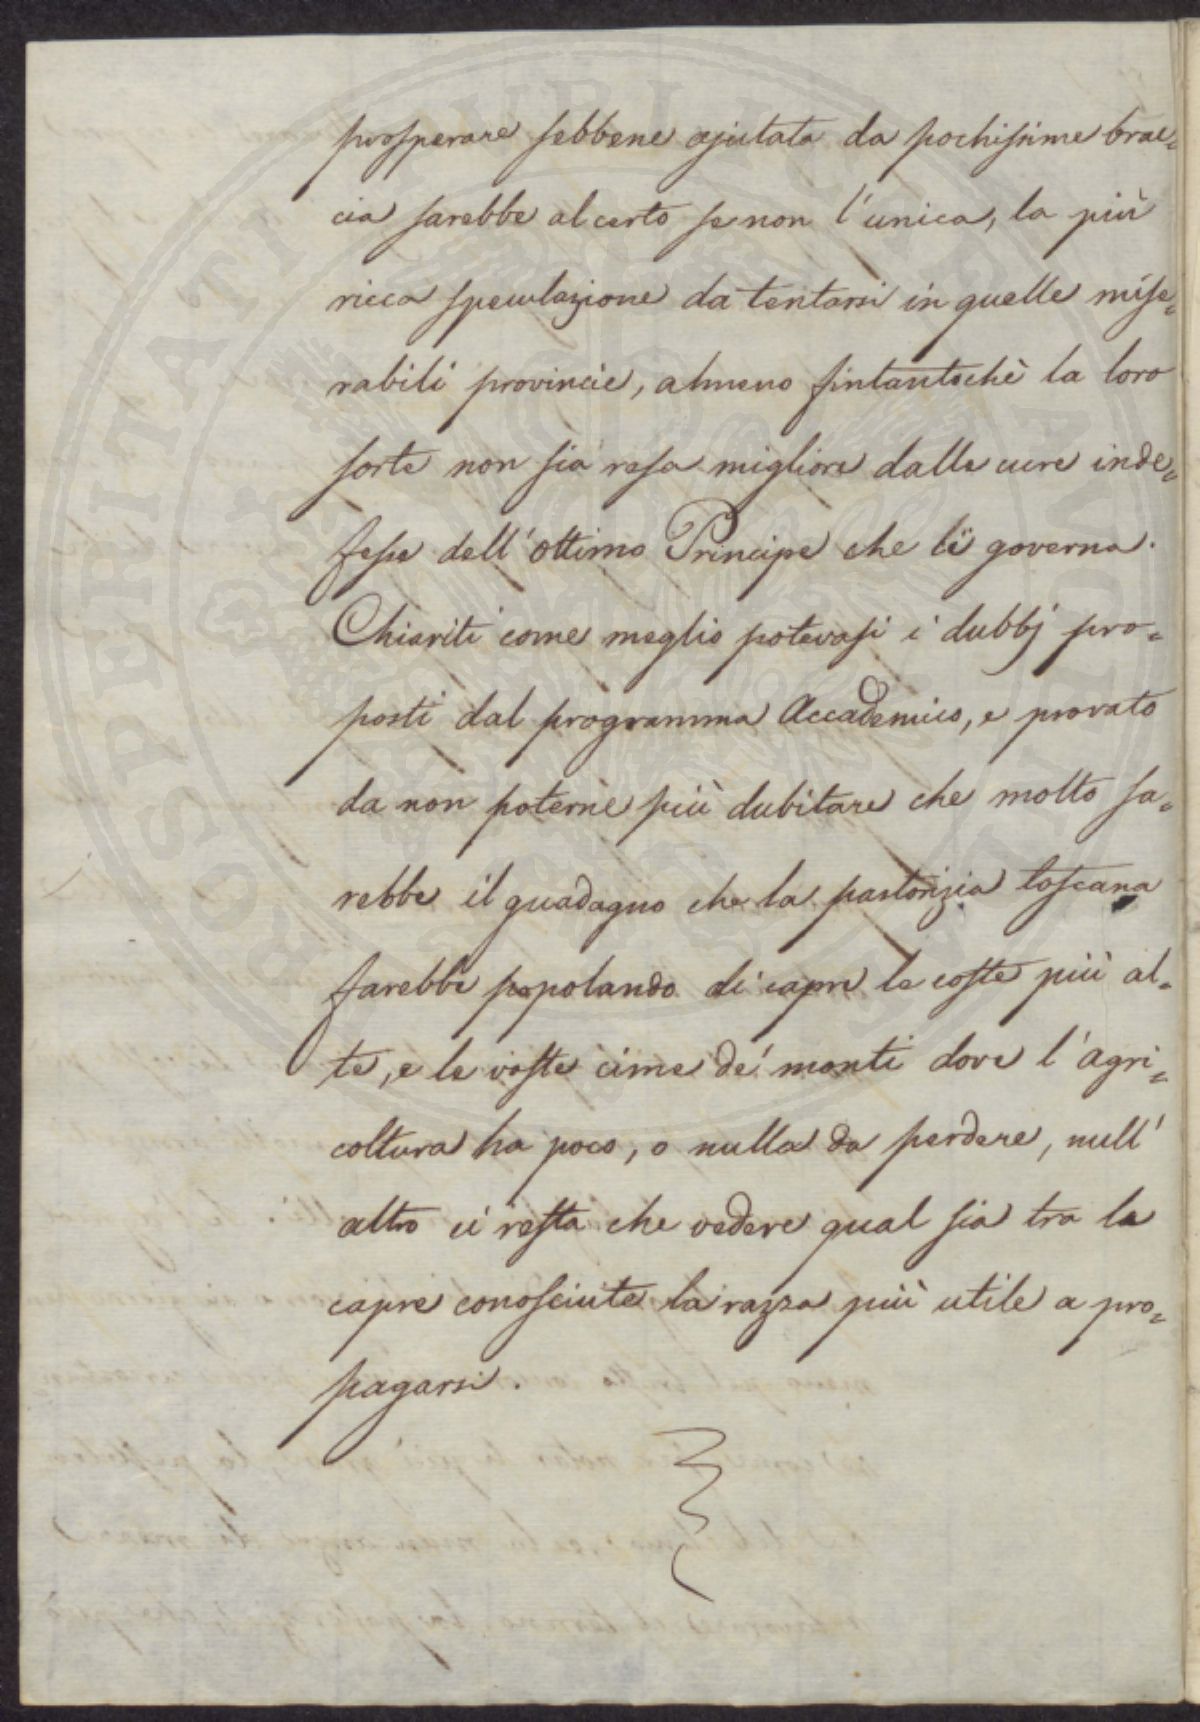 prosperare sebbene ajutata da pochissime brac=
cia sarebbe al certo se non l'unica, la più
ricca speculazione da tentarsi in quelle mise=
rabili provincie, almeno fintantochè la loro
sorte non sia resa migliore dalle cure inde=
fesse dell'ottimo Principe che le governa.
Chiariti come meglio potevasi i dubbj pro=
posti dal programma Accademico, e provato
da non poterne più dubitare che molto sa=
rebbe il guadagno che la pastorizia toscana
farebbe popolando di capre le coste più al=
te, e le vaste cime de' monti dove l'agri=
coltura ha poco, o nulla da perdere, null'
altro ci resta che vedere qual sia tra le
capre conosciute la razza più utile a pro=
pagarsi.
PROSPERITATI PUBLICAE AUGENDAE